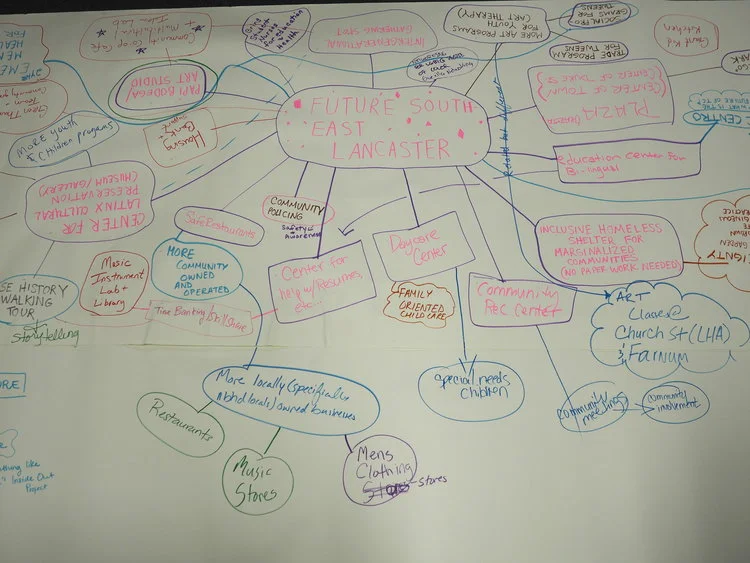 FUTURE SOUTH
EAST
LANCASTER
Community Co-op Cafe
INTERGENERATIONAL
GATHERING SPOT
MORE ART PROGRAMS
FOR YOUTH
(ART THERAPY)
SOCIAL PRO
GRAMS FOR
TWEENS
TRADE PROGRAM
FOR TWEENS
Kitchen
PLAZA
(CENTER OF TOWN)
EL CENTRO
PAN BODEGA/
ART STUDIO
MORE Youth
& Children programs
Housing
CENTER FOR
LATINX CULTURAL
PRESERVATION
(MUSEUM/GALLERY)
Education center for
Bi-lingual
COMMUNITY
POLICING
Safety &
awareness
Safe Restaurants
MORE
COMMUNITY
OWNED
AND
OPERATED
Music
Instrument
Lab +
Library
SE HISTORY
WALKING
TOUR
storytelling
Time Banking/Skill Share
Center for
help w/ Resumes
etc...
Daycare
Center
FAMILY
ORIENTED
CHILD CARE
INCLUSIVE HOMELESS
SHELTER FOR
MARGINALIZED
COMMUNITIES
(NO PAPER WORK NEEDED)
GARDEN
Community
Rec Center
ART
Classes @
Church St (LHA)
& Farnum
More locally (specifically
nbhd locals) owned businesses
special needs
children
community
meetings
community
involvement
Restaurants
Music
Stores
Mens
Clothing
Stores
Inside Out
Project